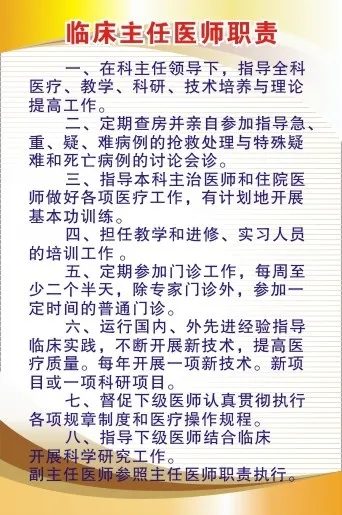 临床主任医师职责
一、在科主任领导下，指导全科
医疗、教学、科研、技术培养与理论
提高工作。
二、定期查房并亲自参加指导急、
重、疑、难病例的抢救处理与特殊疑
难和死亡病例的讨论会诊。
三、指导本科主治医师和住院医
师做好各项医疗工作，有计划地开展
基本功训练。
四、担任教学和进修、实习人员
的培训工作 。
五、定期参加门诊工作，每周至
少二个半天，除专家门诊外，参加一
定时间的普通门诊。
六、运行国内、外先进经验指导
临床实践，不断开展新技术，提高医
疗质量。每年开展一项新技术。新项
目或一项科研项目。
七、督促下级医师认真贯彻执行
各项规章制度和医疗操作规程。
八、指导下级医师结合临床
开展科学研究工作。
副主任医师参照主任医师职责执行。